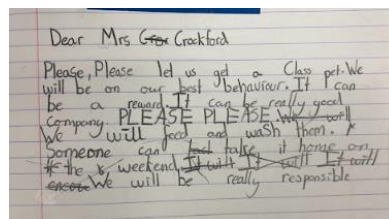 Dear Mrs Crockford
Please, Please let us get a Class pet. We
will be on our best behaviour. It can
be a reward. It can be really good
company. PLEASE PLEASE. We will
We will feed and wash them.
Someone can take it home on
the weekend. It will It will It will
We will be really responsible